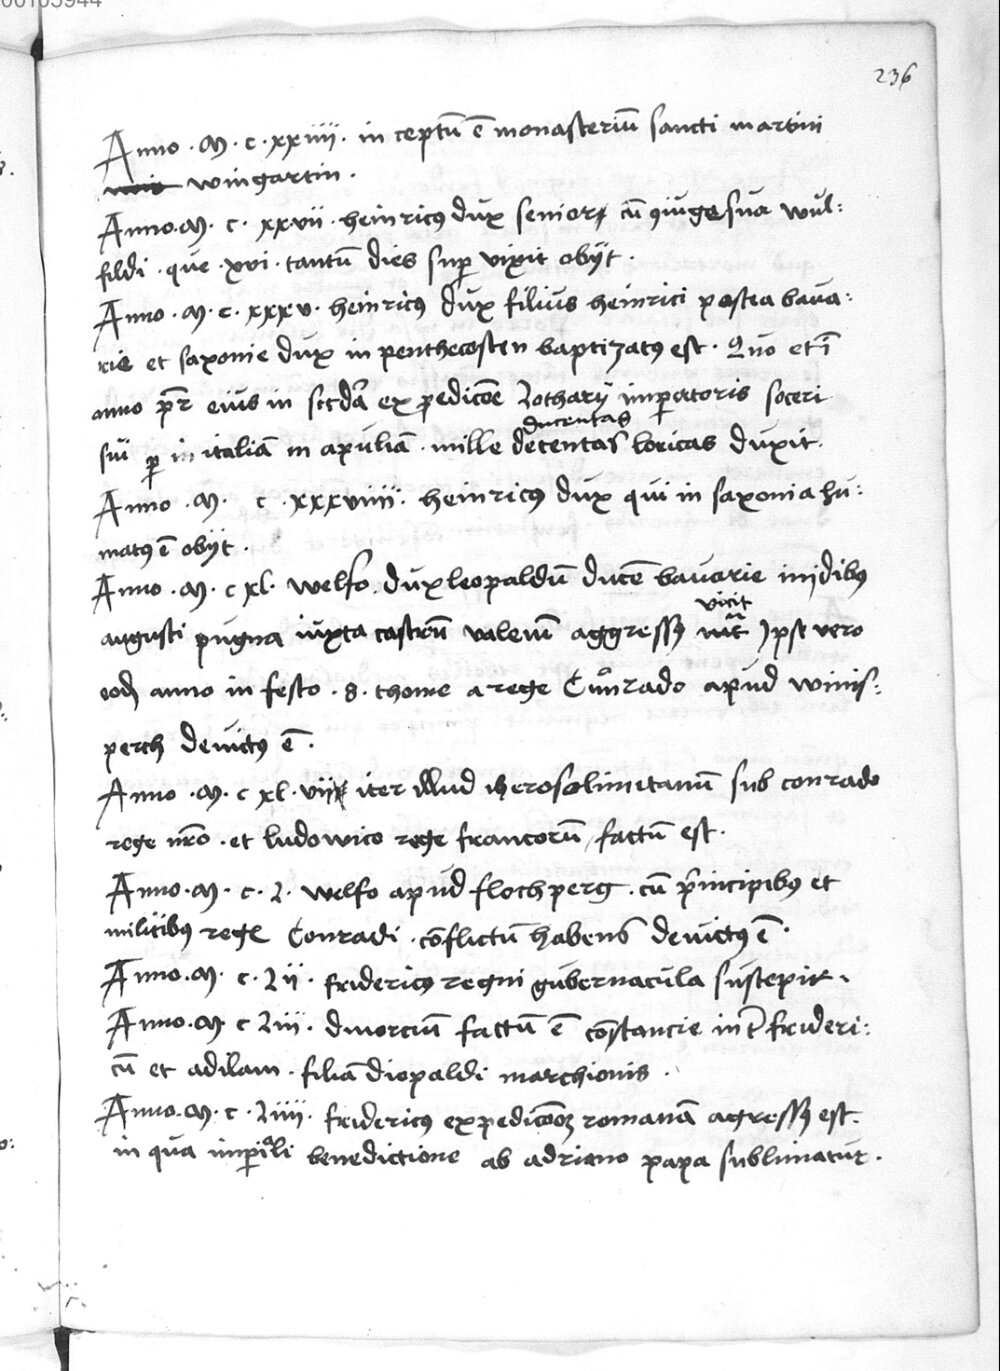 00103944
236
Anno · M · c · xxiiii · in ceptū ē monasteriū sancti martini
wingartin ·
Anno · M · c · xxvii · heinricꝰ dux senior cū ꝯiuge sua wul:
fildi · que · xvi · tantū dies suꝑ vixit obÿt ·
Anno · M · c · xxxv · heinricꝰ dux filius heinrici postea bava:
rie et saxonie dux in penthecosten baptizatꝰ est · Quo et ī
anno pr̄ eius in scd̄a expedicōe Lotharÿ imꝑatoris soceri
ducentas
sui ꝑ in italiā in apuliā · mille decentas loricas duxit ·
Anno · M · c · xxxviiii · heinricꝰ dux qui in saxonia hu:
matꝰ ē obÿt ·
Anno · M · c xl · welfo · dux leopaldū ducē bavarie iiijdibus
vicit
augusti pugna iuxta castrū valeiē aggressꝰ Ipse vero
eodē anno in festo · s · thome a rege Cuͦnrado apud winis:
perch devictꝰ ē ·
Anno · M · c xl · vii iter illud iherosolimitanū sub conrado
rege nr̄o · et ludowico rege francorū factū est ·
Anno · M · c · L · welfo apud flochperg · cū prīncipibꝰ et
militibꝰ regꝭ Conradi · cōflictū habens devictꝰ ē ·
Anno · M · c · Lii · fridericꝰ regni gubernacula suscepit ·
Anno · M · c Liii · divorciū factū ē cōstancie int̄ frideri:
cū et adilam · filiā diopaldi marchionis ·
Anno · M · c · Liiii · fridericꝰ expedicōeꝫ romanā agressꝰ est ·
in qua imꝑiali benedictione ab adriano papa sublimatur ·